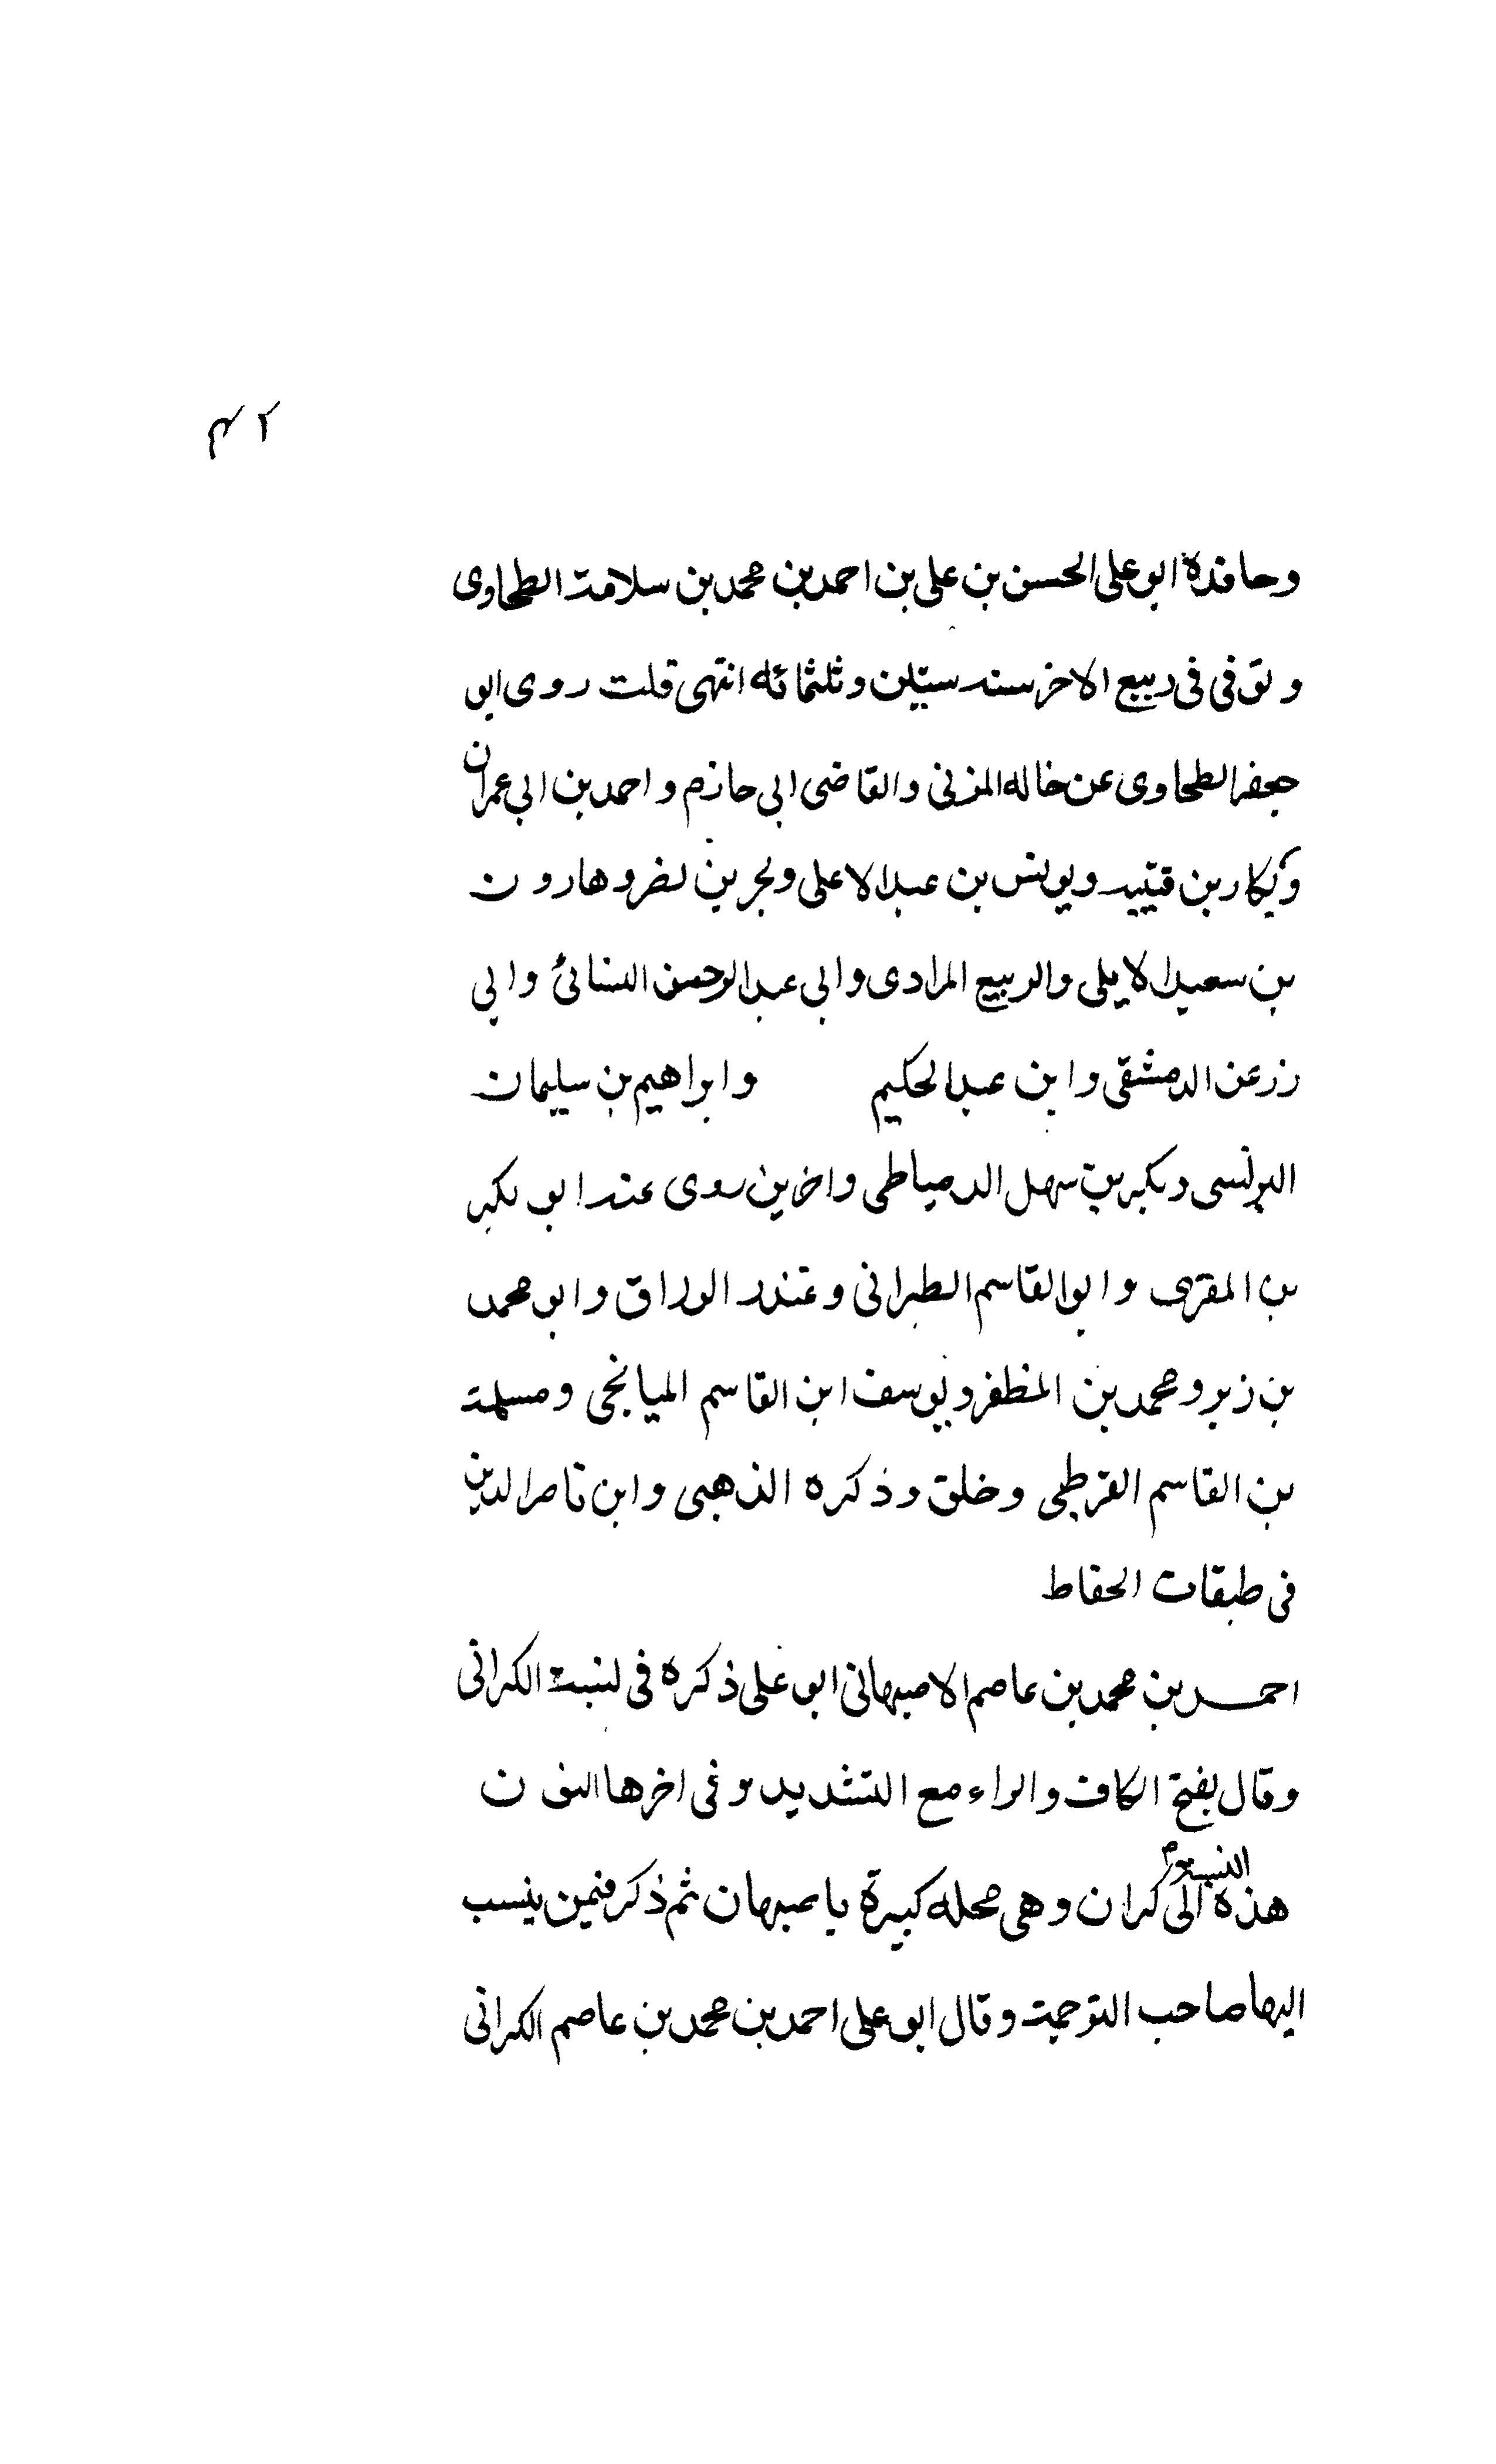 وحافدة ابو على الحسن بن على بن احمد بن محمد بن سلامة الطحاوى
وتوفى فى ربيع الاخر سنة ستين وثلثمائه انتهى قلت روى ابو
جعفر الطحاوى عن خاله المزنى والقاضى ابى حازم واحمد بن ابى عمران
وبكار بن قتيبه ويونس بن عبد الاعلى وبحر بن نصر وهارون
بن سعيد الايلى والربيع المرادى وابى عبد الرحمن النسائى وابى
زرعة الدمشقى وابن عبد الحكيم وابراهيم بن سليمان
البرلسى وبكر بن سهل الدمياطى واخرين روى عنه ابو بكر
بن المقرى وابو القاسم الطبرانى وغندر الوراق وابو محمد
بن زبر ومحمد بن المظفر ويوسف ابن القاسم الميانجى ومسلمة
بن القاسم القرطبى وخلق وذكره الذهبى وابن ناصر الدين
فى طبقات الحفاظ
احمد بن محمد بن عاصم الاصبهانى ابو على ذكره فى نسبة الكرانى
وقال بفتح الكاف والراء مع التشديد وفى اخرها النون
هذه النسبة الى كران وهى محله كبيرة باصبهان ثم ذكر فيمن ينسب
اليها صاحب الترجمة وقال ابو على احمد بن محمد بن عاصم الكرانى